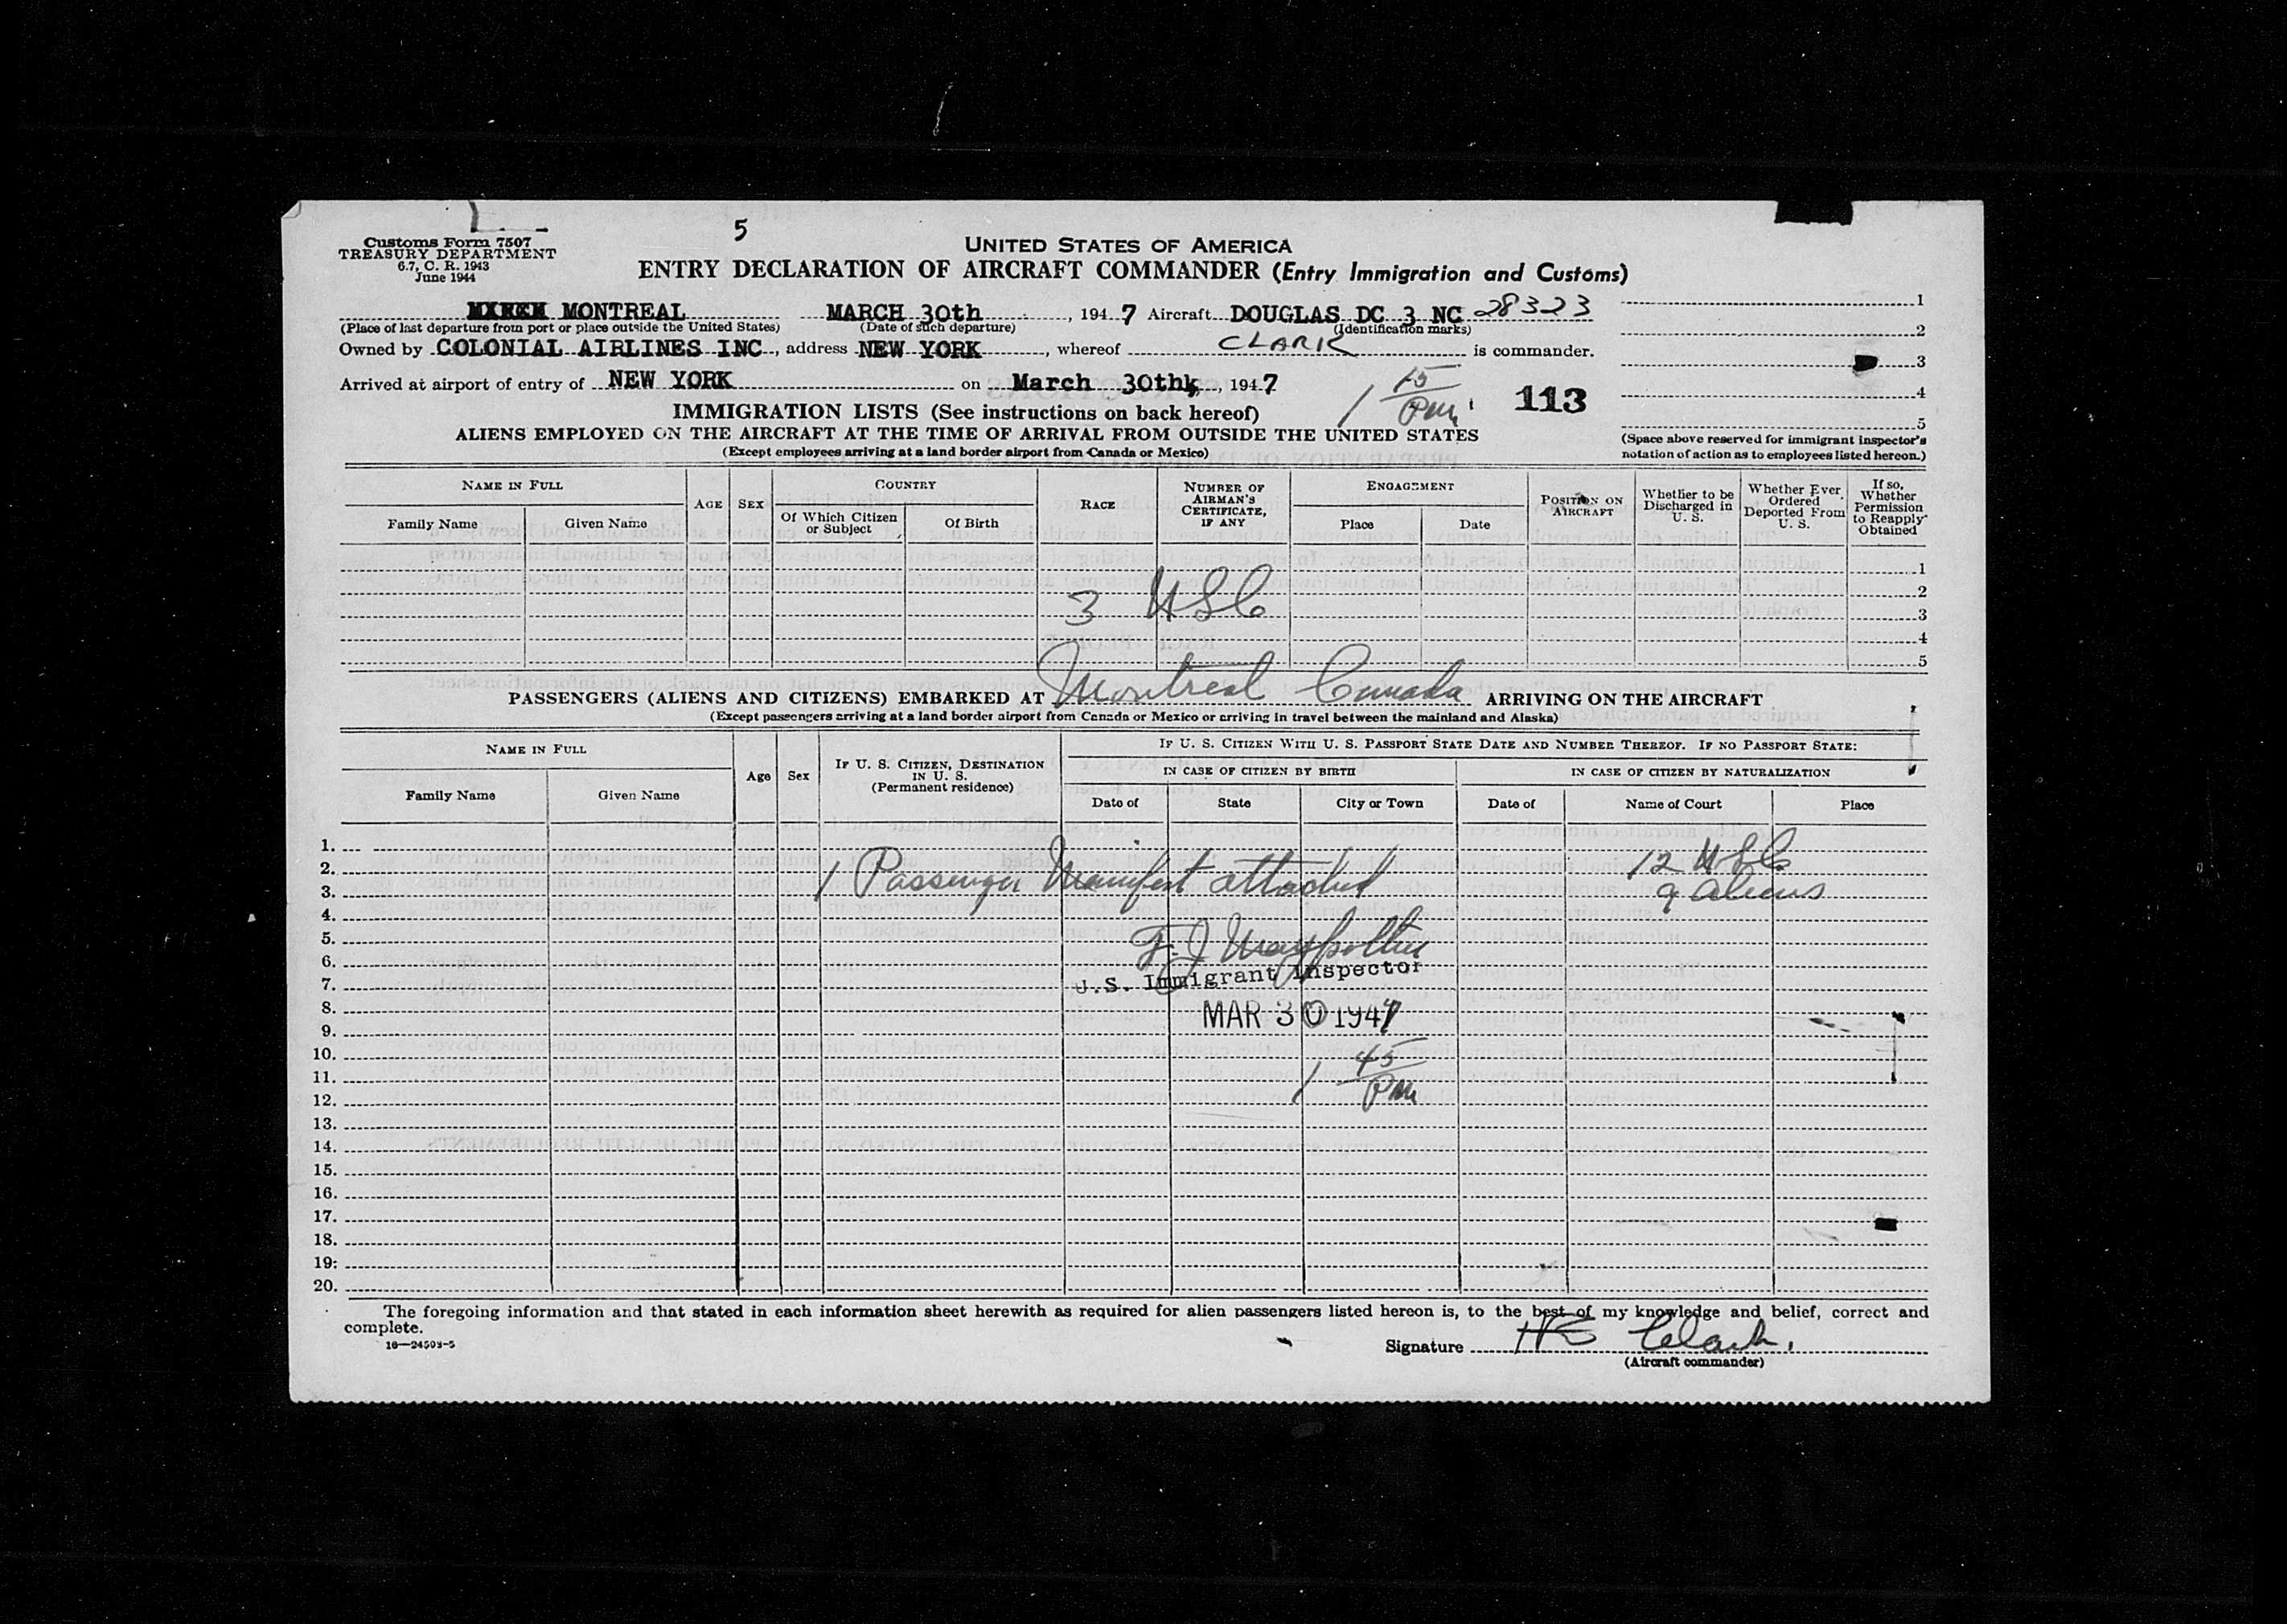 5
Customs Form 7507
TREASURY DEPARTMENT
6.7, C. R. 1943
June 1944
UNITED STATES OF AMERICA
ENTRY DECLARATION OF AIRCRAFT COMMANDER (Entry Immigration and Customs)
MONTREAL MARCH 30th, 1947 Aircraft DOUGLAS DC 3 NC 28323
(Place of last departure from port or place outside the United States) (Date of such departure) (Identification marks)
Owned by COLONIAL AIRLINES INC, address NEW YORK, whereof CLARK is commander.
Arrived at airport of entry of NEW YORK on March 30th, 1947
1 15 PM
113
1
2
3
4
5
(Space above reserved for immigrant inspector's notation of action as to employees listed hereon.)
IMMIGRATION LISTS (See instructions on back hereof)
ALIENS EMPLOYED ON THE AIRCRAFT AT THE TIME OF ARRIVAL FROM OUTSIDE THE UNITED STATES
(Except employees arriving at a land border airport from Canada or Mexico)
NAME IN FULL
Family Name Given Name
AGE SEX
COUNTRY
Of Which Citizen or Subject Of Birth
RACE
NUMBER OF AIRMAN'S CERTIFICATE, IF ANY
ENGAGEMENT
Place Date
POSITION ON AIRCRAFT
Whether to be Discharged in U. S.
Whether Ever Ordered Deported From U. S.
If so, Whether Permission to Reapply Obtained
1
2
3 USC
3
4
5
PASSENGERS (ALIENS AND CITIZENS) EMBARKED AT Montreal Canada ARRIVING ON THE AIRCRAFT
(Except passengers arriving at a land border airport from Canada or Mexico or arriving in travel between the mainland and Alaska)
NAME IN FULL
Family Name Given Name
Age Sex
IF U. S. CITIZEN, DESTINATION IN U. S.
(Permanent residence)
IF U. S. CITIZEN WITH U. S. PASSPORT STATE DATE AND NUMBER THEREOF. IF NO PASSPORT STATE:
IN CASE OF CITIZEN BY BIRTH IN CASE OF CITIZEN BY NATURALIZATION
Date of State City or Town Date of Name of Court Place
1.
2. 12 USC
3. 1 Passenger Manifest attached 9 aliens
4.
5. F. J.
6.
7. U.S. Immigrant Inspector
8. MAR 30 1947
9.
10. 1 45
11. PM
12.
13.
14.
15.
16.
17.
18.
19.
20.
The foregoing information and that stated in each information sheet herewith as required for alien passengers listed hereon is, to the best of my knowledge and belief, correct and
complete.
16—24503-5
Signature Clark.
(Aircraft commander)